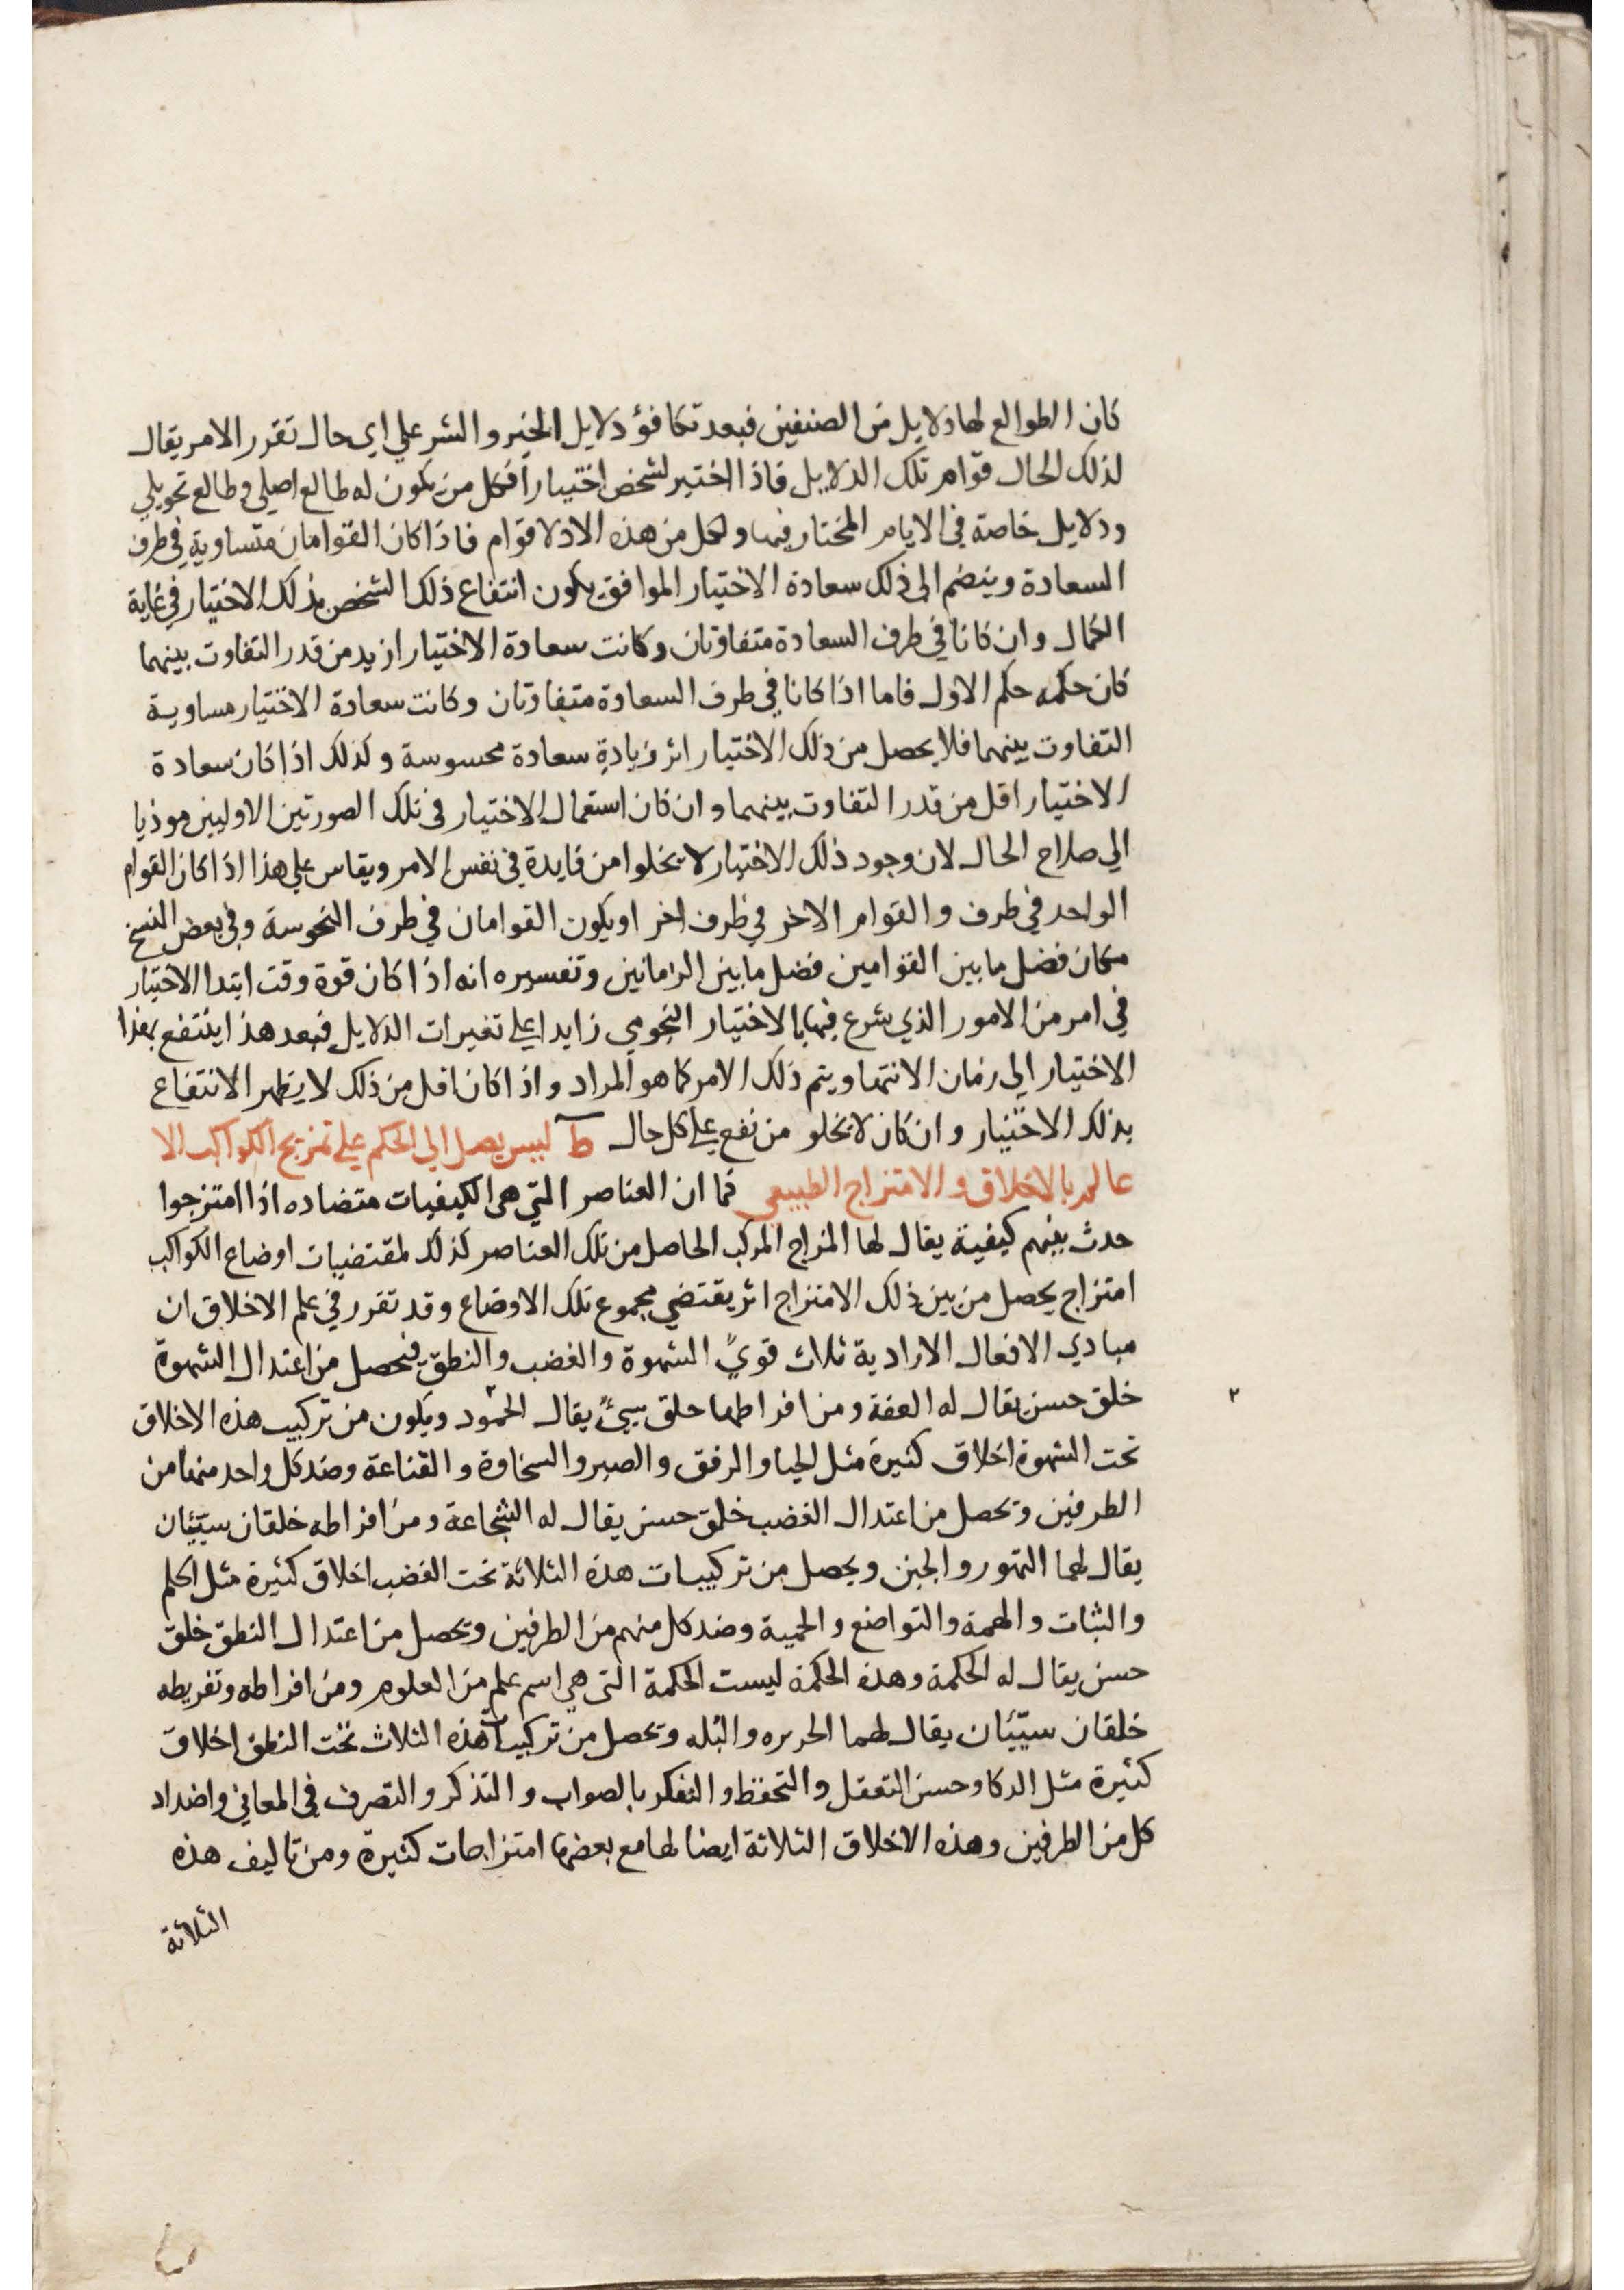 كان الطوالع لها دلايل من الصنفين فبعد تكافؤ دلايل الخير والشر علي اي حال تقرر الامر يقال
لذلك الحال قوام تلك الدلايل فاذا اختير لشخص اختيارا فكل من يكون له طالع اصلي وطالع تحويلي
ودلايل خاصة في الايام المختار فيها ولكل من هذه الادلا قوام فاذا كان القوامان متساوية في طرف
السعادة وينضم الى ذلك سعادة الاختيار الموافق يكون انتفاع ذلك الشخص بذلك الاختيار في غاية
الكمال وان كانا في طرف السعادة متفاوتان وكانت سعادة الاختيار ازيد من قدر التفاوت بينهما
كان حكمه حكم الاول فاما اذا كانا في طرف السعادة متفاوتان وكانت سعادة الاختيار مساوية
التفاوت بينهما فلا يحصل من ذلك الاختيار اثر زيادة سعادة محسوسة وكذلك اذا كان سعادة
الاختيار اقل من قدر التفاوت بينهما وان كان استعمال الاختيار في تلك الصورتين الاوليين موذيا
الي صلاح الحال لان وجود ذلك الاختيار لا يخلوا من فايدة في نفس الامر ويقاس علي هذا اذا كان القوام
الواحد في طرف والقوام الاخر في طرف اخر او يكون القوامان في طرف النحوسة وفي بعض النسخ
مكان فضل ما بين القوامين فضل ما بين الزمانين وتفسيره انه اذا كان قوة وقت ابتدا الاختيار
في امر من الامور الذي شرع فيها بالاختيار النجومي زايدا علي تغيرات الدلايل فبعد هذا ينتفع بهذا
الاختيار الي زمان الانتها ويتم ذلك الامر كما هو المراد واذا كان اقل من ذلك لا يظهر الانتفاع
بذلك الاختيار وان كان لا يخلو من نفع علي كل حال ط ليس يصل الي الحكم علي تمزيج الكواكب الا
عالم بالاخلاق والامتزاج الطبيعي كما ان العناصر التي هي الكيفيات متضاده اذا امتزجوا
حدث بينهم كيفية يقال لها المزاج المركب الحاصل من تلك العناصر كذلك لمقتضيات اوضاع الكواكب
امتزاج يحصل من بين ذلك الامتزاج اثر يقتضي مجموع تلك الاوضاع وقد تقرر في علم الاخلاق ان
مبادي الافعال الارادية ثلاث قويً الشهوة والغضب والنطق فيحصل من اعتدال الشهوة
خلق حسن يقال له العفة ومن افراطها خلق سيئ يقال الخمود ويكون من تركيب هذه الاخلاق
تحت الشهوة اخلاق كثيرة مثل الحيا والرفق والصبر والسخاوة والقناعة وضد كل واحد منها من
الطرفين وتحصل من اعتدال الغضب خلق حسن يقال له الشجاعة ومن افراطه خلقان سيّيان
يقال لهما التهور والجبن ويحصل من تركيبات هذه الثلاثة تحت الغضب اخلاق كثيرة مثل الحلم
والثبات والهمة والتواضع والحمية وضد كل منهم من الطرفين ويحصل من اعتدال النطق خلق
حسن يقال له الحكمة وهذه الحكمة ليست الحكمة التي هي اسم علم من العلوم ومن افراطه وتفريطه
خلقان سيّئان يقال لهما الحربره والبله وتحصل من تركيبات هذه الثلاث تحت النطق اخلاق
كثيرة مثل الدكا وحسن التعقل والتحفظ والتفكر بالصواب والتذكر والتصرف في المعاني واضداد
كل من الطرفين وهذه الاخلاق الثلاثة ايضا لها مع بعضها امتزاجات كثيرة ومن تاليف هذه
الثلاثة